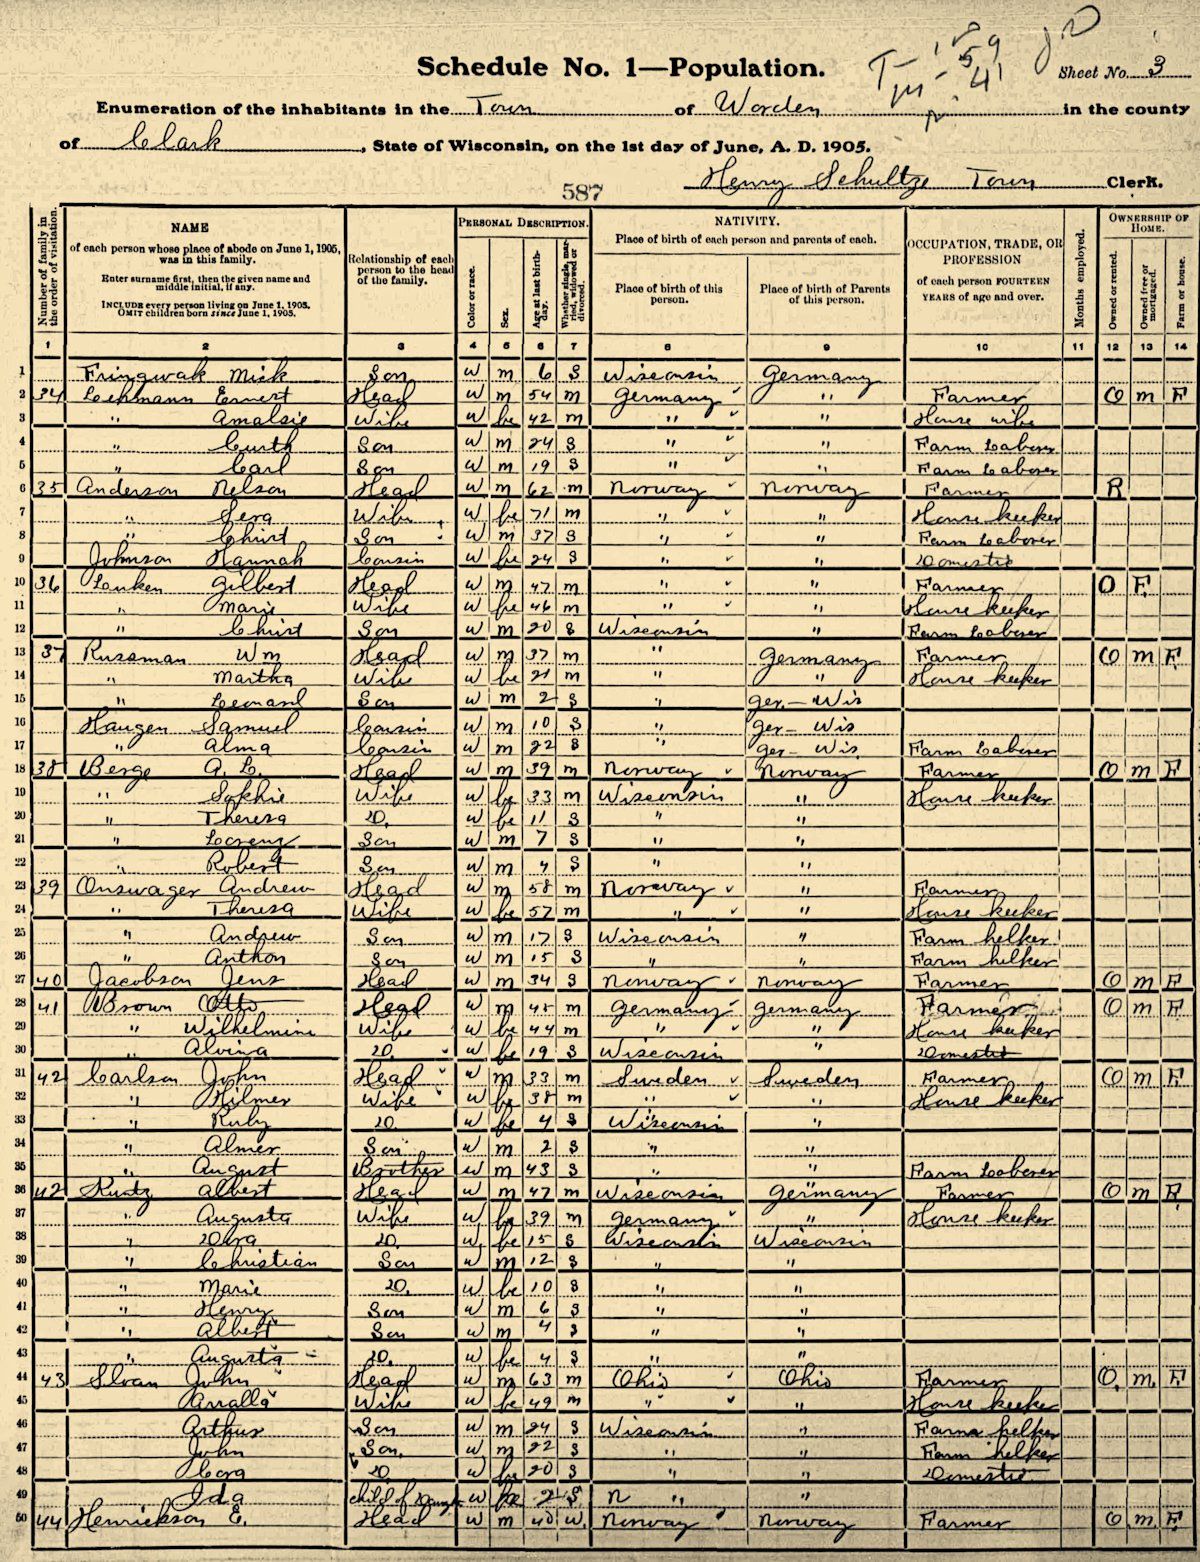 T - 159 D
m - 41
n.
Schedule No. 1—Population.
Sheet No. 3
Enumeration of the inhabitants in the Town of Worden in the county
of Clark, State of Wisconsin, on the 1st day of June, A. D. 1905.
587
Henry Schultze Town Clerk.
Number of family in the order of visitation.
NAME
of each person whose place of abode on June 1, 1905, was in this family.
Enter surname first, then the given name and middle initial, if any.
INCLUDE every person living on June 1, 1905.
OMIT children born since June 1, 1905.
Relationship of each person to the head of the family.
PERSONAL DESCRIPTION.
Color or race.
Sex.
Age at last birthday.
Whether single, married, widowed or divorced.
NATIVITY.
Place of birth of each person and parents of each.
Place of birth of this person.
Place of birth of Parents of this person.
OCCUPATION, TRADE, OR PROFESSION
of each person FOURTEEN YEARS of age and over.
Months employed.
OWNERSHIP OF HOME.
Owned or rented.
Owned free or mortgaged.
Farm or house.
1 2 3 4 5 6 7 8 9 10 11 12 13 14
1 Fringwak Mick Son W m 6 S Wisconsin Germany
2 34 Lehmann Ernest Head W m 54 m Germany " Farmer O m F
3 " Amalsie Wife W fe 42 m " " House wife
4 " Curth Son W m 24 S " " Farm Laberer
5 " Carl Son W m 19 S " " Farm Laberer
6 35 Anderson Nelson Head W m 62 m Norway Norway Farmer R
7 " Sera Wife W fe 71 m " " House keeker
8 " Christ Son W m 37 S " " Farm Laberer
9 Johnson Hannah Cousin W fe 24 S " " Domestic
10 36 Lenken Gilbert Head W m 47 m " " Farmer O F
11 " Marie Wife W fe 46 m " " House keeker
12 " Christ Son W m 20 S Wisconsin " Farm Laberer
13 37 Russman Wm Head W m 37 m " Germany Farmer O m F
14 " Martha Wife W fe 21 m " " House keeker
15 " Leonard Son W m 2 S " ger. - Wis
16 Haugen Samuel Cousin W m 10 S " ger - Wis
17 " Alma Cousin W m 22 S " ger - Wis Farm Laberer
18 38 Berge A. L. Head W m 39 m Norway Norway Farmer O m F
19 " Sophie Wife W fe 33 m Wisconsin " House keeker
20 " Theresa D. W fe 11 S " "
21 " Lorenz Son W m 7 S " "
22 " Robert Son W m 4 S " "
23 39 Onswager Andrew Head W m 58 m Norway " Farmer
24 " Theresa Wife W fe 57 m " " House keeker
25 " Andrew Son W m 17 S Wisconsin " Farm helker
26 " Anthon Son W m 15 S " " Farm helker
27 40 Jacobson Jens Head W m 34 S Norway Norway Farmer O m F
28 41 Brown Otto Head W m 45 m Germany Germany Farmer O m F
29 " Wilhelmine Wife W fe 44 m " " House keeker
30 " Alvina D. W fe 19 S Wisconsin " Domestic
31 42 Carlson John Head W m 33 m Sweden Sweden Farmer O m F
32 " Hilmer Wife W fe 38 m " " House keeker
33 " Ruby D. W fe 4 S Wisconsin "
34 " Almer Son W m 2 S " "
35 " August Brother W m 43 S " " Farm Laberer
36 42 Kuntz Albert Head W m 47 m Wisconsin Germany Farmer O m F
37 " Augusta Wife W fe 39 m Germany " House keeker
38 " Dora D. W fe 15 S Wisconsin Wisconsin
39 " Christian Son W m 12 S " "
40 " Marie D. W fe 10 S " "
41 " Henry Son W m 6 S " "
42 " Albert Son W m 4 S " "
43 " Augusta D. W fe 4 S " "
44 43 Sloan John Head W m 63 m Ohio Ohio Farmer O. m. F
45 Wife W fe 49 m " " House keeker
46 Arthur Son W m 24 S Wisconsin " Farm helker
47 John Son. W m 22 S " " Farm helker
48 Cora D. W fe 20 S " " Domestic
49 Ida child of Daugh W fe 2 S n " "
50 44 Henrickson E. Head W m 40 W. Norway Norway Farmer O m. F.